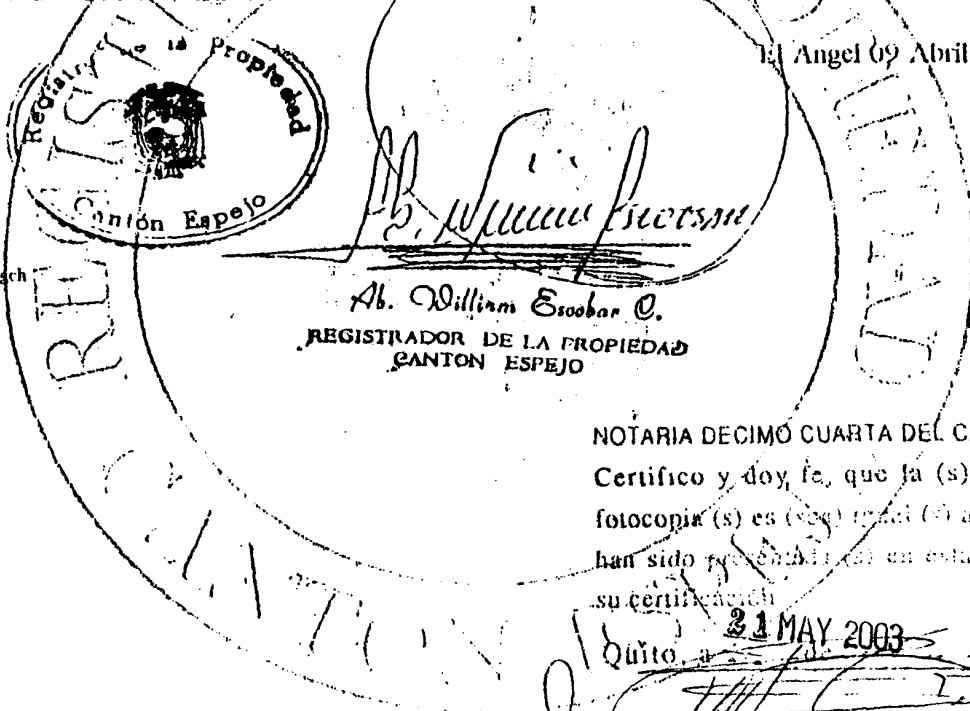 El Angel 09 Abril
Registro de la Propiedad
Cantón Espejo
gch
Ab. William Escobar C.
REGISTRADOR DE LA PROPIEDAD
CANTON ESPEJO
NOTARIA DECIMO CUARTA DEL C
Certifico y doy fe, que la (s)
fotocopia (s) es (son) igual (s) a
han sido presentada (s) en esta
su certificación
21 MAY 2003
Quito, a de